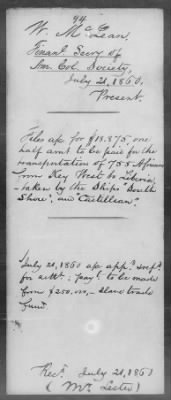 94
W. McLean,
Finanl Secy of
Am. Col. Society,
July 21, 1860.
Present.
Files a/c for $18.875 one
half amt to be paid for the
transportation of 755 Africans
from Key West to Liberia,
taken by the Ships "South
Shore", and "Castillian".
July 20, 1860
for
payt to be made
from $250,000, - slave trade
fund.
Recd. July 21, 1860
(Mr. Lester)